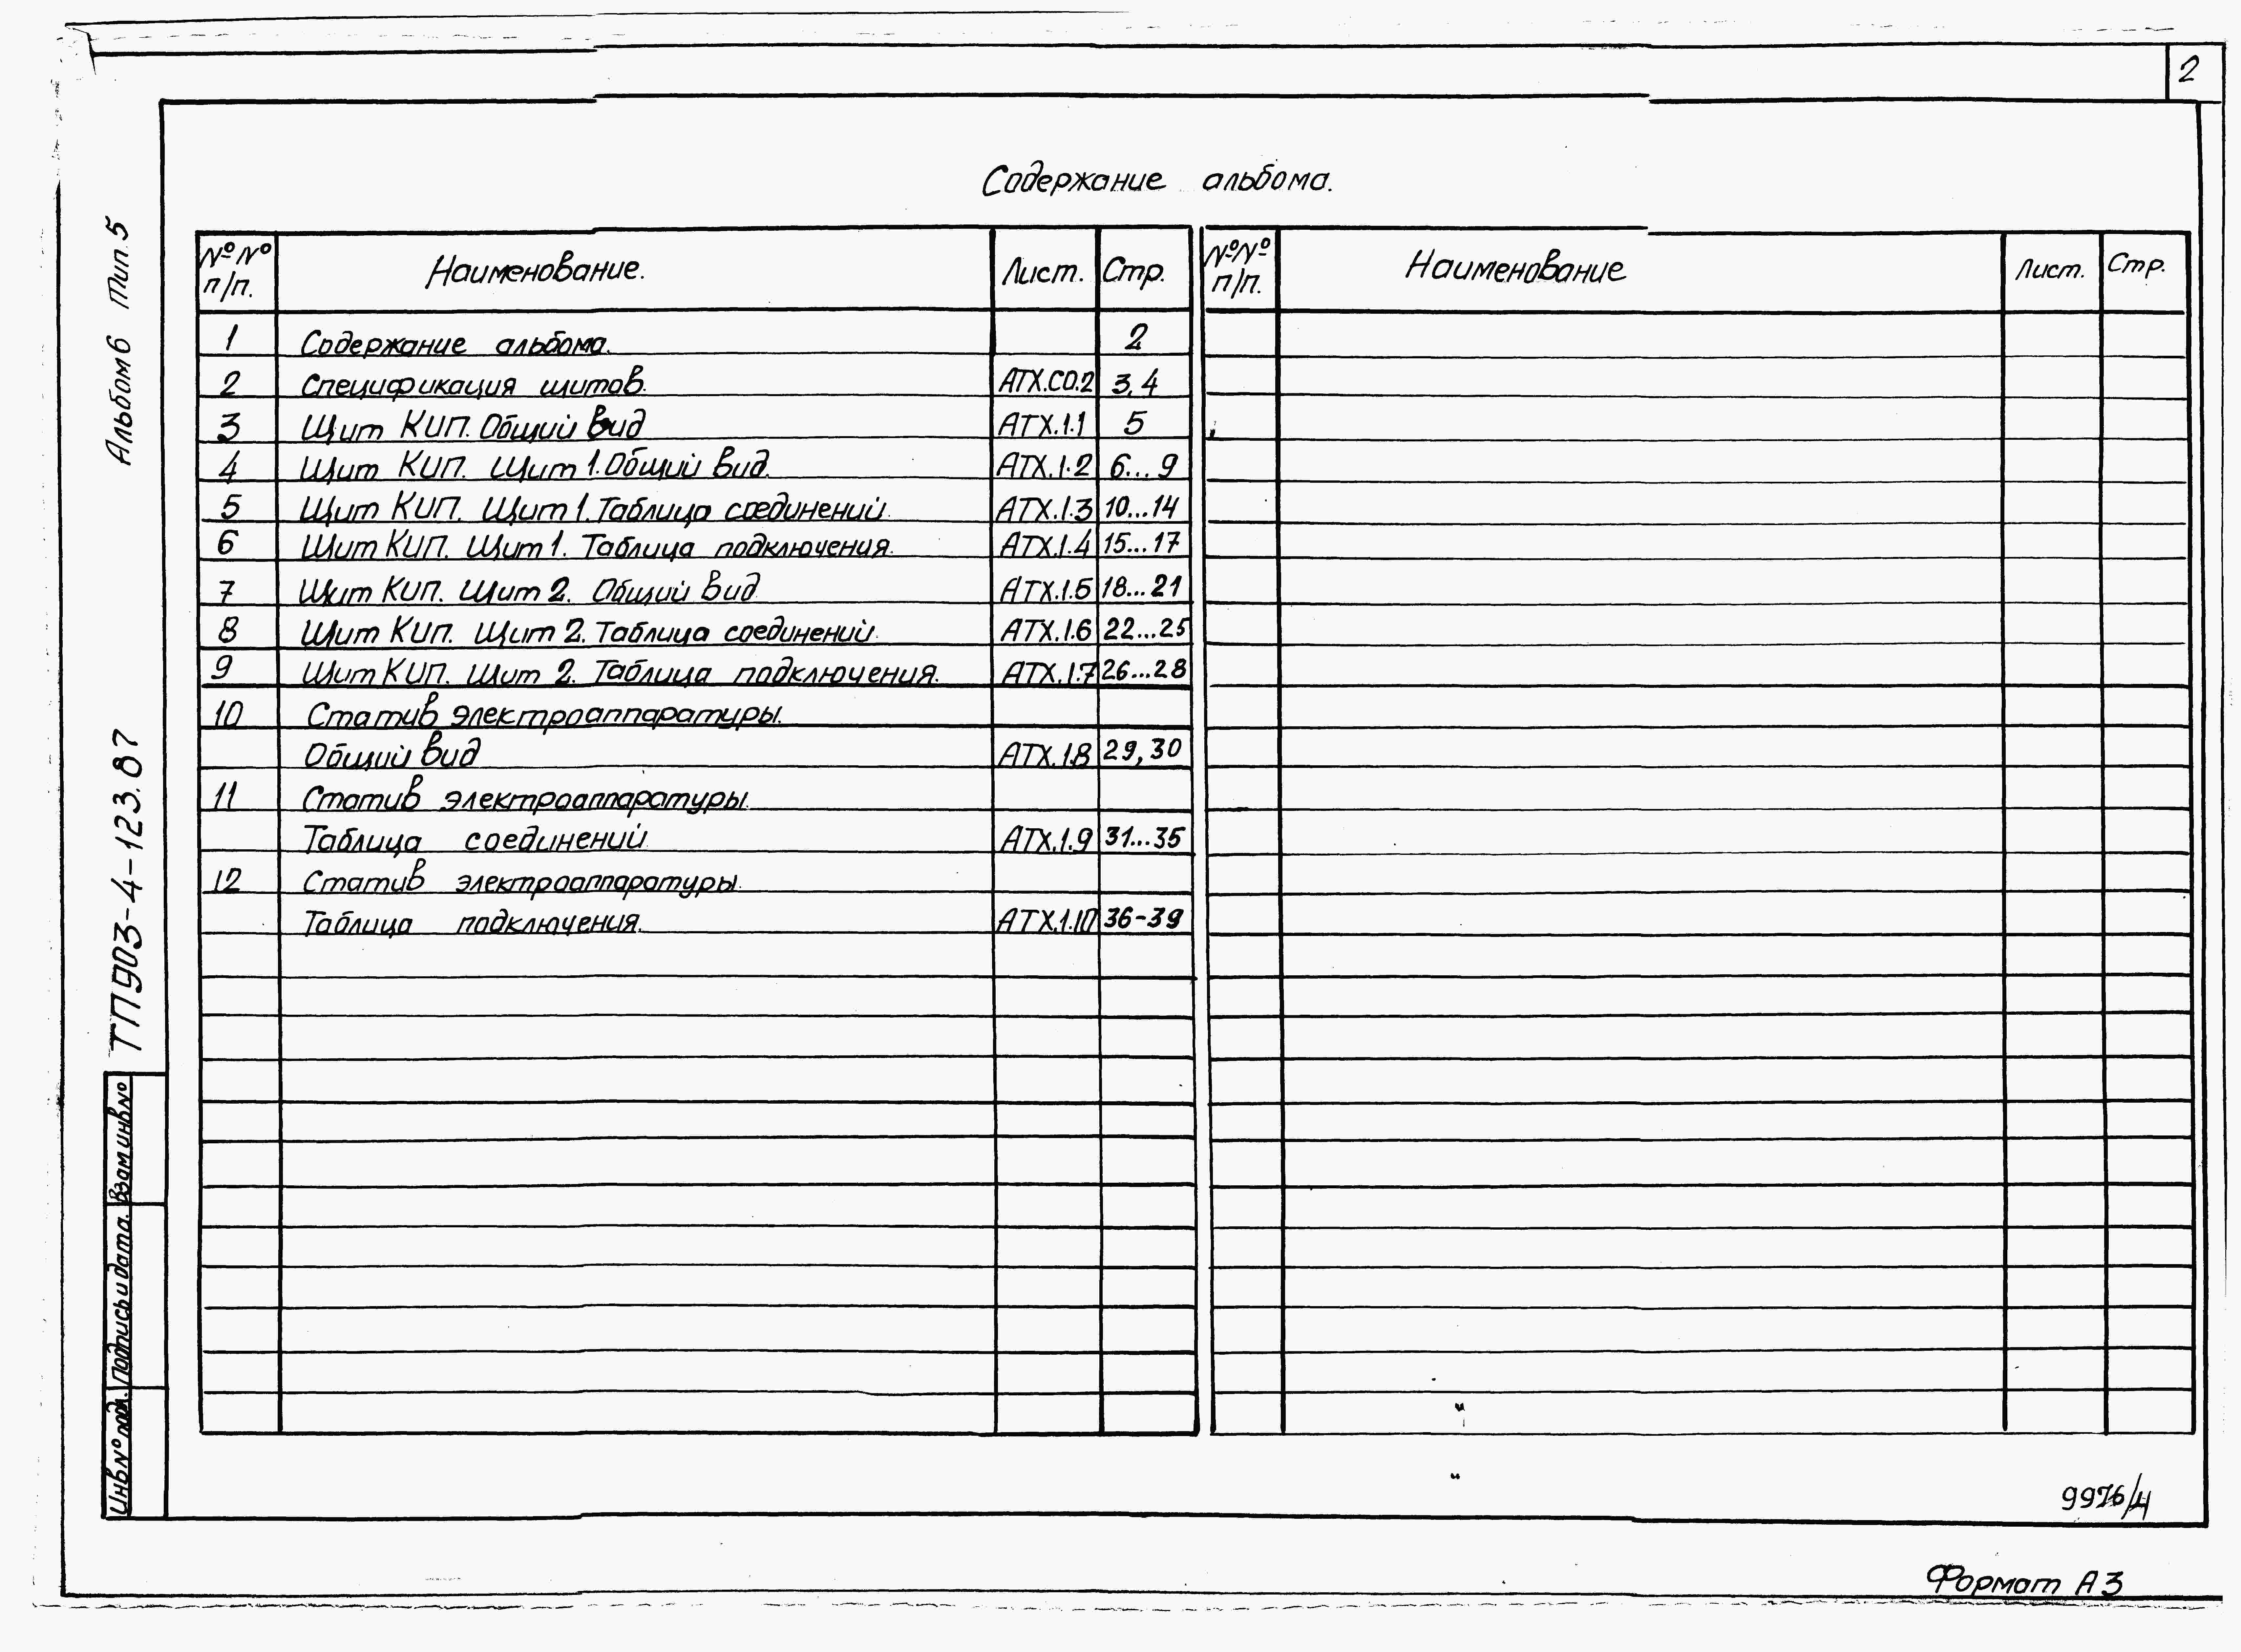 2
Содержание альбома.
№ № п/п. Наименование. Лист. Стр.
1 Содержание альбома. 2
2 Спецификация щитов. АТХ.СО.2 3,4
3 Щит КИП. Общий вид АТХ.1.1 5
4 Щит КИП. Щит 1. Общий вид. АТХ.1.2 6...9
5 Щит КИП. Щит 1. Таблица соединений АТХ.1.3 10...14
6 Щит КИП. Щит 1. Таблица подключения. АТХ.1.4 15...17
7 Щит КИП. Щит 2. Общий вид АТХ.1.5 18...21
8 Щит КИП. Щит 2. Таблица соединений. АТХ.1.6 22...25
9 Щит КИП. Щит 2. Таблица подключения. АТХ.1.7 26...28
10 Статив электроаппаратуры.
Общий вид АТХ.1.8 29,30
11 Статив электроаппаратуры.
Таблица соединений АТХ.1.9 31...35
12 Статив электроаппаратуры.
Таблица подключения. АТХ.1.10 36-39
№ № п/п. Наименование Лист. Стр.
Альбом 6 Тип.5
ТП903-4-123.87
Взам инв №
Подпись и дата.
Инв № подл.
9976/4
Формат А3